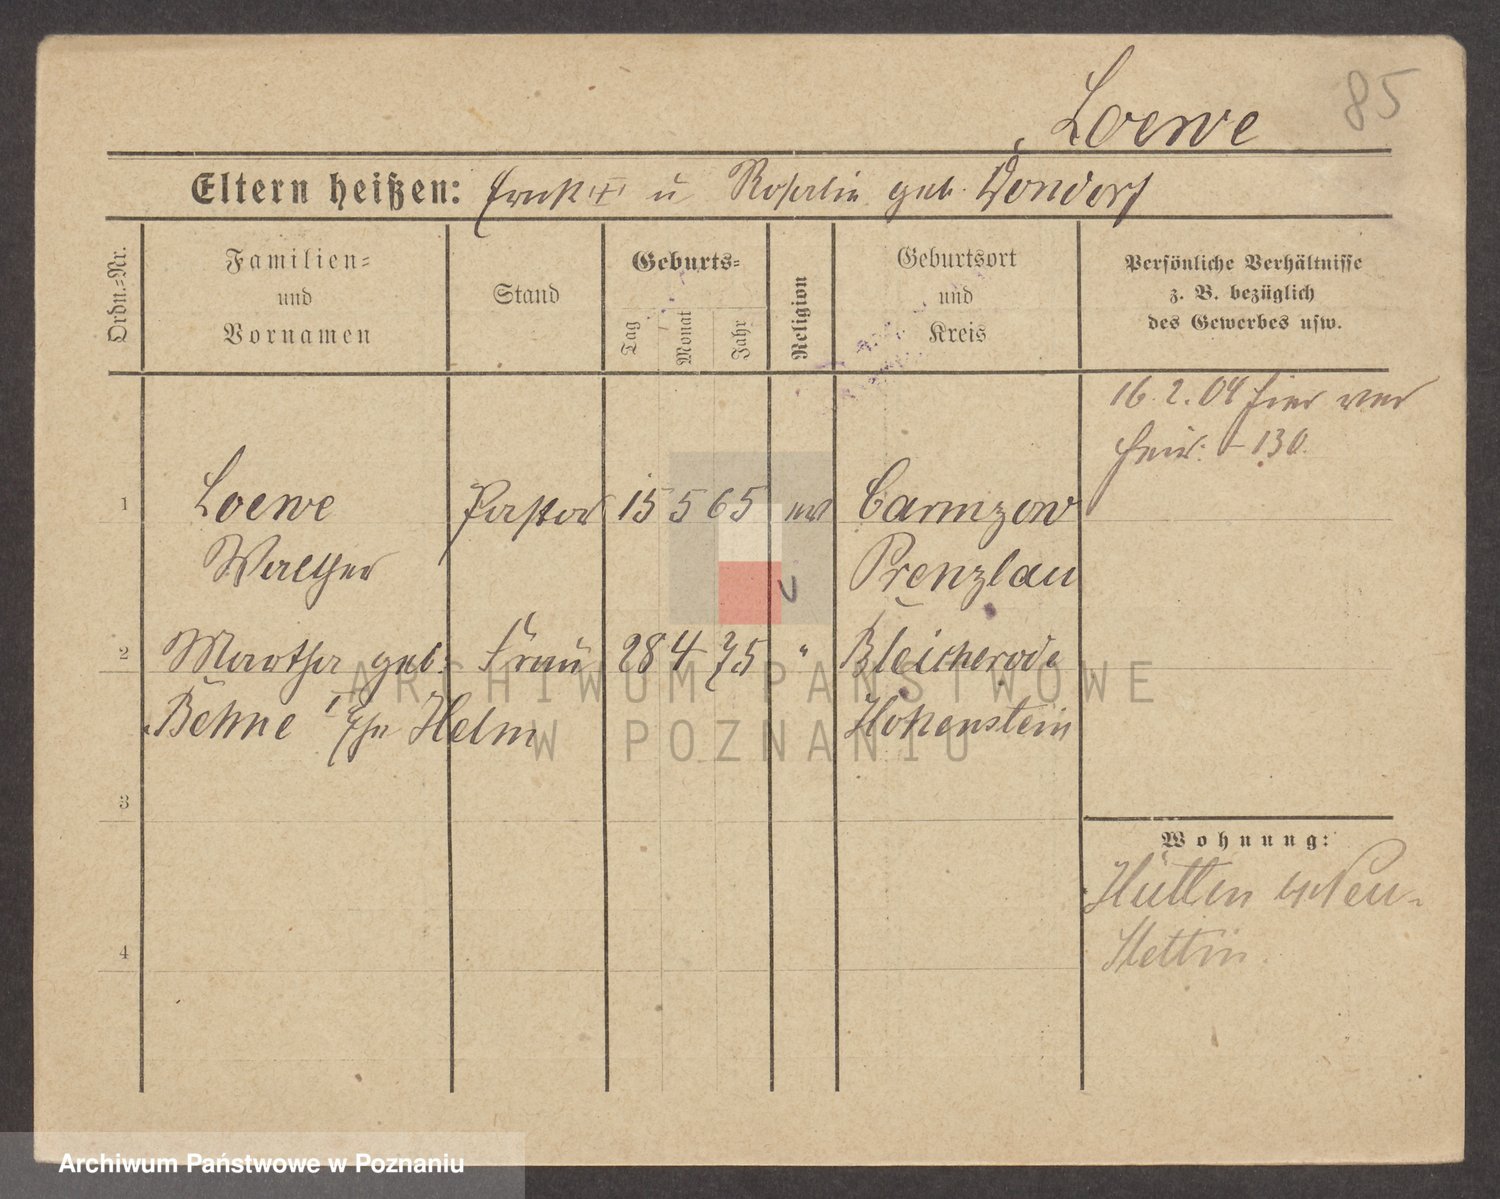 Loewe
85
Eltern heißen: u Rosalie geb. Dondorf
Ordn.-Nr.
Familien-
und
Vornamen
Stand
Geburts-
Tag
Monat
Jahr
Religion
Geburtsort
und
Kreis
Persönliche Verhältnisse
z. B. bezüglich
des Gewerbes usw.
16.2.04 hier ver
heir. 130.
1 Loewe Pastor 15 5 65 ev Carmzow
Walther Prenzlau
2 Martha geb. Frau 28 4 75 " Bleicherode
Behne Helm Hohenstein
3
Wohnung:
Hütten Neu-
Stettin.
4
ARCHIWUM PAŃSTWOWE
W POZNANIU
Archiwum Państwowe w Poznaniu